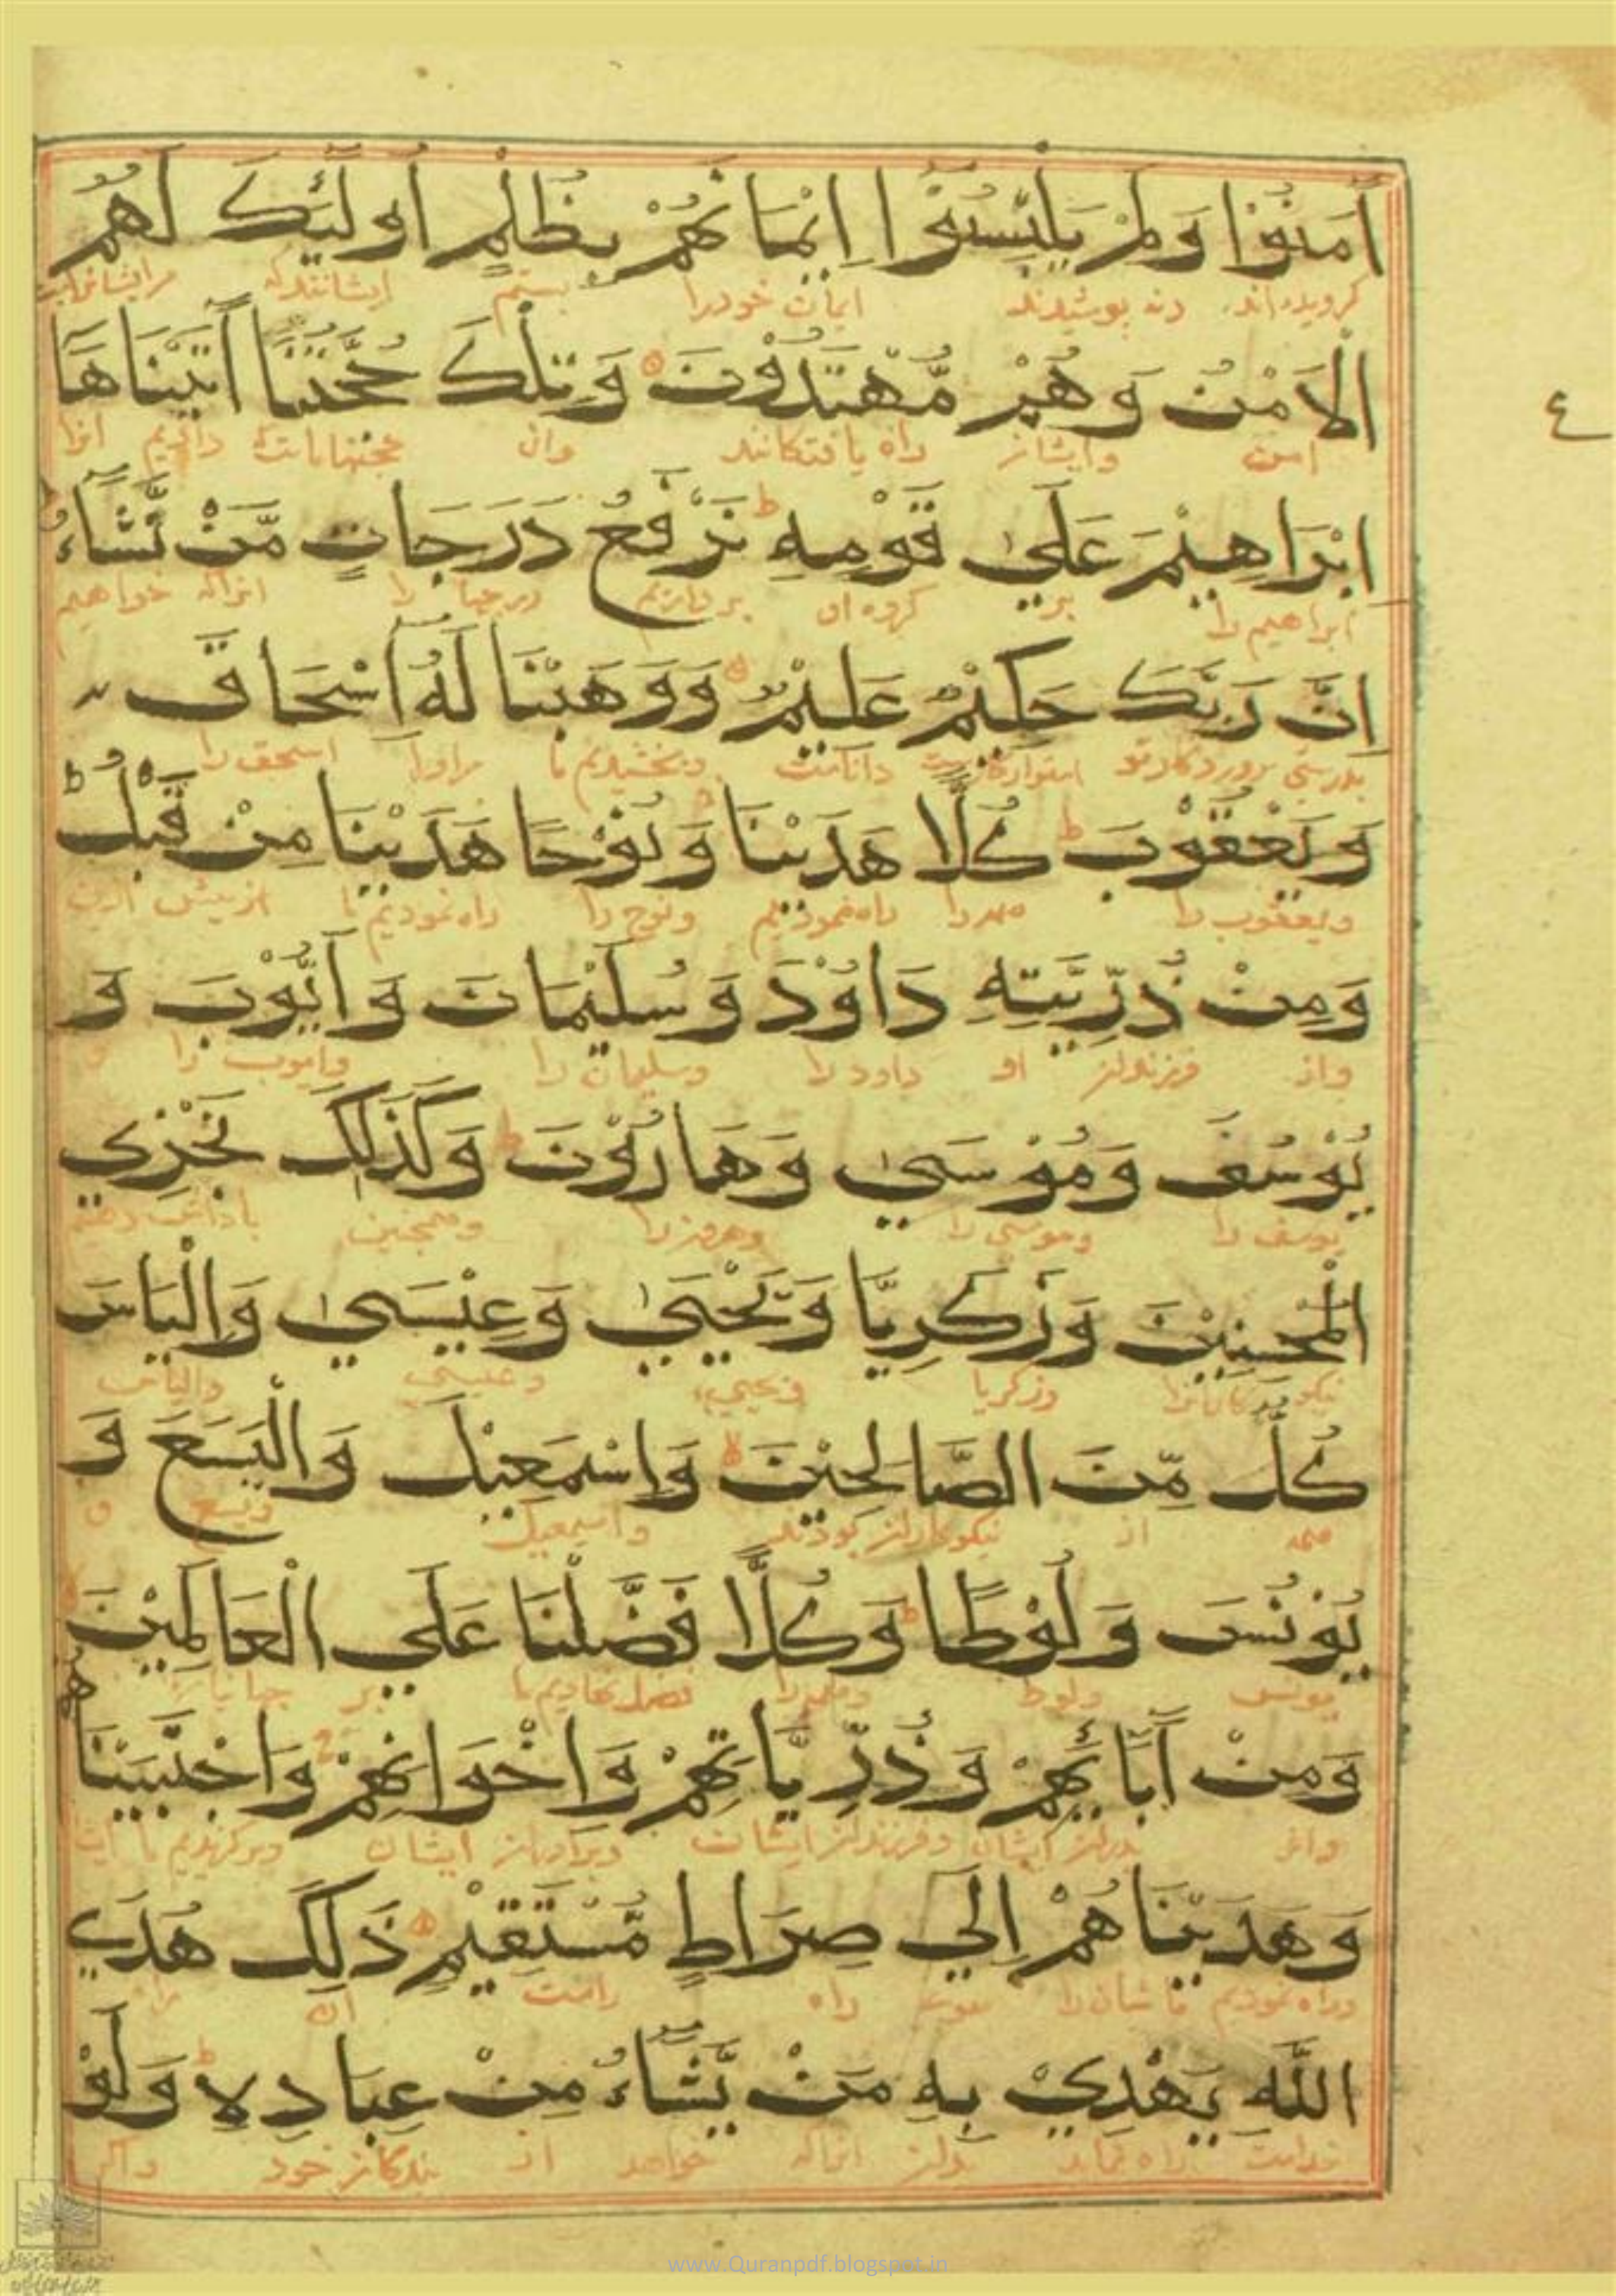 اٰمَنُوْا وَلَمْ يَلْبِسُوْا اِيْمَانَهُمْ بِظُلْمٍ اُولٰٓئِكَ لَهُمُ
كرويده اند ونه پوشيدند ايمان خودرا بستم ايشانندكه مرايشانراست
الْاَمْنُ وَهُمْ مُّهْتَدُوْنَ وَتِلْكَ حُجَّتُنَا اٰتَيْنَاهَا
امن وايشان راه يافتكانند وان حجتهاماست داديم انرا
٤
اِبْرَاهِيْمَ عَلٰي قَوْمِهٖ ط نَرْفَعُ دَرَجَاتٍ مَّنْ نَّشَآءُ ط
ابراهيم را بر كروه او بر داريم درجها را انراكه خواهيم
اِنَّ رَبَّكَ حَكِيْمٌ عَلِيْمٌ وَوَهَبْنَا لَهٗ اِسْحَاقَ
بدرستى پروردكارتو داناست وبخشيديم ما مراورا اسحق را
وَيَعْقُوْبَ ط كُلًّا هَدَيْنَا وَنُوْحًا هَدَيْنَا مِنْ قَبْلُ ط
ويعقوب را همه را راه نموديم ونوح را راه نموديم ما ازپيش ازين
وَمِنْ ذُرِّيَّتِهٖ دَاوُوْدَ وَسُلَيْمَانَ وَاَيُّوْبَ وَ
واز فرزندان او داود را وسليمان را وايوب را و
يُوْسُفَ وَمُوْسٰي وَهَارُوْنَ ط وَكَذٰلِكَ نَجْزِي
يوسف را وموسى را وهرونرا وهمچنين پاداش دهيم
الْمُحْسِنِيْنَ وَزَكَرِيَّا وَيَحْيٰي وَعِيْسٰي وَاِلْيَاسَ
نيكو كارانرا وزكريا ويحيى وعيسى والياس
كُلٌّ مِّنَ الصَّالِحِيْنَ لا وَاِسْمٰعِيْلَ وَالْيَسَعَ وَ
همه از نيكوكاران بودند واسمعيل ويسع و
يُوْنُسَ وَلُوْطًا ط وَكُلًّا فَضَّلْنَا عَلَي الْعَالَمِيْنَ لا
يونس ولوط وهمه را فضل نهاديم ما بر جهانيان
وَمِنْ اٰبَآئِهِمْ وَذُرِّيَّاتِهِمْ وَاِخْوَانِهِمْ وَاجْتَبَيْنَاهُمْ
واز پدران ايشان وفرزندان ايشان وبرادران ايشان وبركزيديم ما
وَهَدَيْنَاهُمْ اِلٰي صِرَاطٍ مُّسْتَقِيْمٍ ذٰلِكَ هُدَي
وراه نموديم ما شان را سوى راه راست ان
اللّٰهِ يَهْدِيْ بِهٖ مَنْ يَّشَآءُ مِنْ عِبَادِهٖ ط وَلَوْ
خداست راه نمايد بدان انراكه خواهد از بندكان خود واكر
www.Quranpdf.blogspot.in